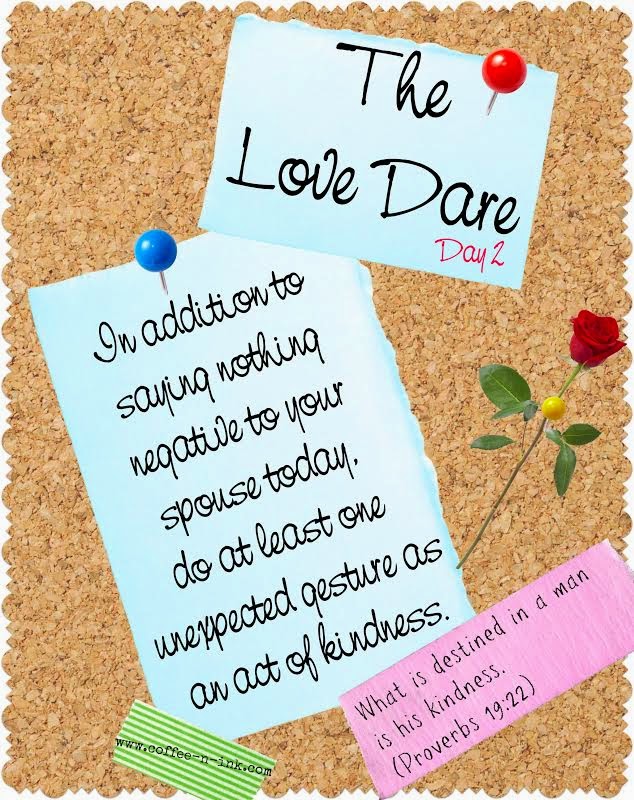 The
Love Dare
Day 2
In addition to
saying nothing
negative to your
spouse today,
do at least one
unexpected gesture as
an act of kindness.
What is destined in a man
is his kindness.
(Proverbs 19:22)
www.coffee-n-ink.com